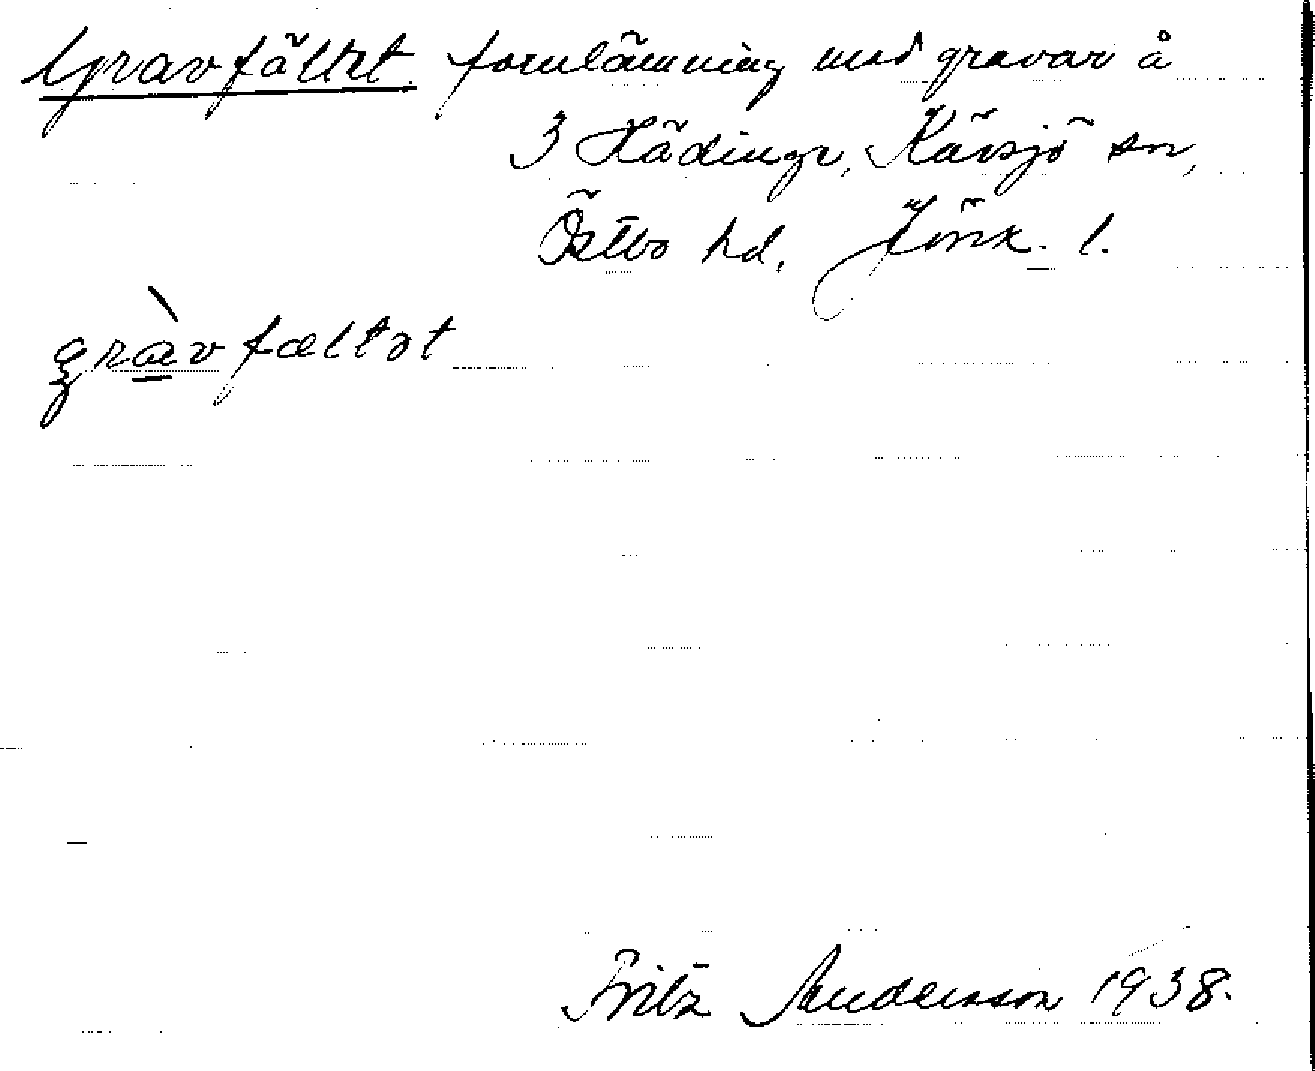 Gravfältet. fornlämning med gravar å
3 Hädinge, Kävsjö sn,
Östbo hd. Jönk. l.
gràvfæltət
Fritz Andersson 1938.